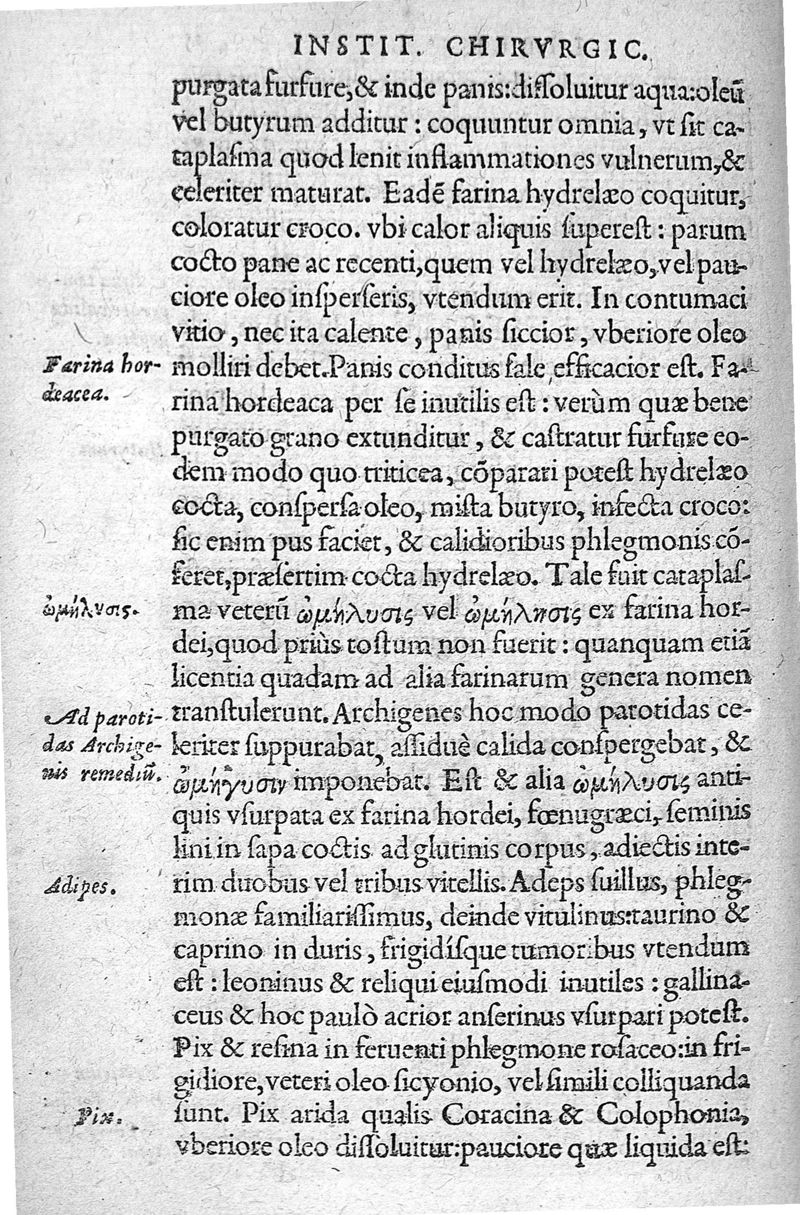 INSTIT. CHIRVRGIC.
purgata furfure, & inde panis: dissoluitur aqua: oleũ
vel butyrum additur : coquuntur omnia, vt sit ca-
taplasma quod lenit inflammationes vulnerum, &
celeriter maturat. Eadẽ farina hydrelæo coquitur,
coloratur croco. vbi calor aliquis superest : parum
cocto pane ac recenti, quem vel hydrelæo, vel pau-
ciore oleo insperseris, vtendum erit. In contumaci
vitio, nec ita calente, panis siccior, vberiore oleo
Farina hor-
deacea.
molliri debet. Panis conditus sale, efficacior est. Fa-
rina hordeaca per se inutilis est : verùm quæ bene
purgato grano extunditur, & castratur furfure eo-
dem modo quo triticea, cõparari potest hydrelæo
cocta, conspersa oleo, mista butyro, infecta croco:
sic enim pus faciet, & calidioribus phlegmonis cõ-
feret, præsertim cocta hydrelæo. Tale fuit cataplas-
ὠμήλυσις.
ma veterũ ὠμήλυσις vel ὠμήλησις ex farina hor-
dei, quod priùs tostum non fuerit : quanquam etiã
licentia quadam ad alia farinarum genera nomen
Ad paroti-
das Archige-
nis remediũ.
transtulerunt. Archigenes hoc modo parotidas ce-
leriter suppurabat, assiduè calida conspergebat, &
ὠμήγυσιν imponebat. Est & alia ὠμήλυσις anti-
quis vsurpata ex farina hordei, fœnugræci, seminis
lini in sapa coctis ad glutinis corpus, adiectis inte-
Adipes.
rim duobus vel tribus vitellis. Adeps suillus, phleg-
monæ familiarissimus, deinde vitulinus: taurino &
caprino in duris, frigidísque tumoribus vtendum
est : leoninus & reliqui eiusmodi inutiles : gallina-
ceus & hoc paulò acrior anserinus vsurpari potest.
Pix & resina in feruenti phlegmone rosaceo: in fri-
gidiore, veteri oleo sicyonio, vel simili colliquanda
Pix.
sunt. Pix arida qualis Coracina & Colophonia,
vberiore oleo dissoluitur: pauciore quæ liquida est: